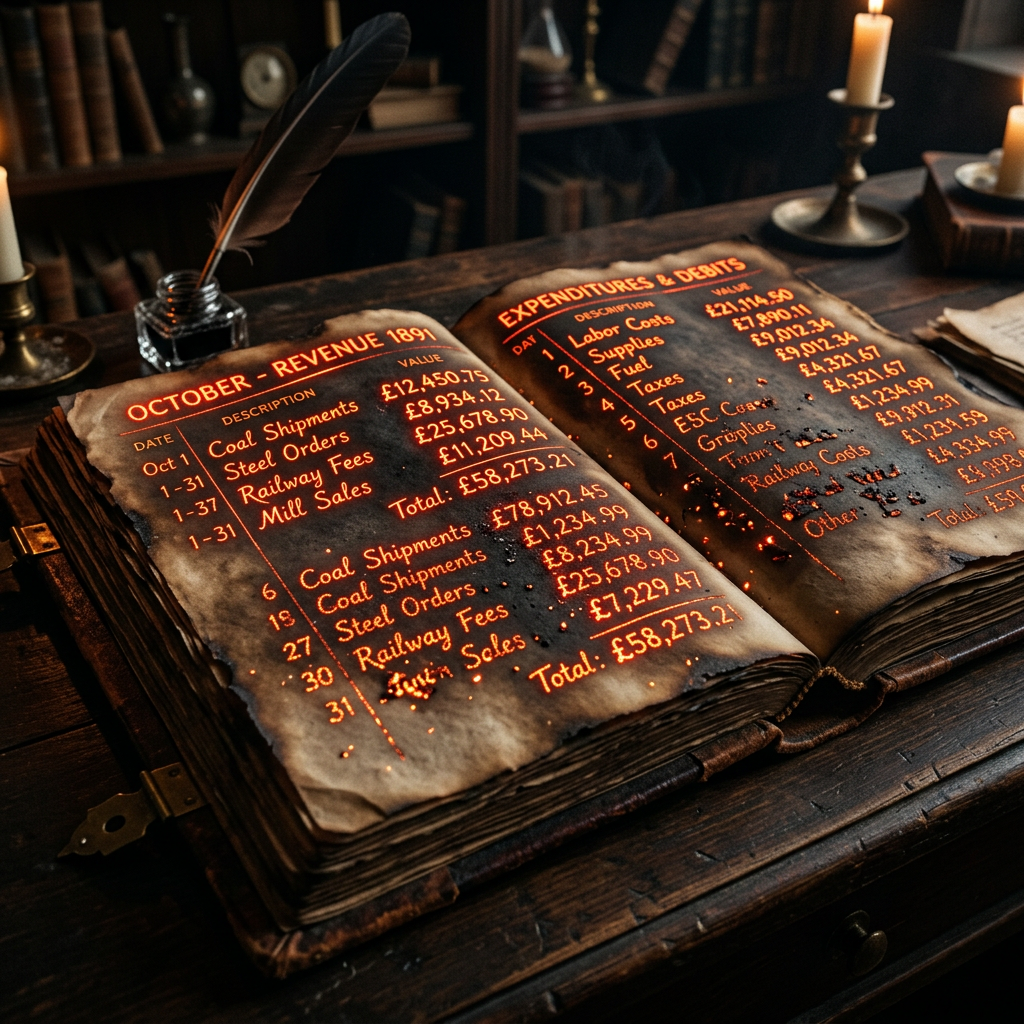 OCTOBER - REVENUE 1891
DATE DESCRIPTION VALUE
Oct 1 Coal Shipments £12,450.75
1-31 Steel Orders £8,934.12
1-37 Railway Fees £25,678.90
1-31 Mill Sales £11,209.44
Total: £58,273.21
6 Coal Shipments £78,912.45
18 Coal Shipments £1,234.99
27 Steel Orders £8,234.99
30 Railway Fees £25,678.90
31 Sales £7,229.47
Total: £58,273.21
EXPENDITURES & DEBITS
DAT DESCRIPTION VALUE
1 Labor Costs £21,114.50
2 Supplies £7,890.11
3 Fuel £9,012.34
4 Taxes £9,012.34
5 Taxes £4,321.67
6 £4,321.67
7 £1,234.99
£9,312.31
Railway Costs
£4,334.99
Other
Total: